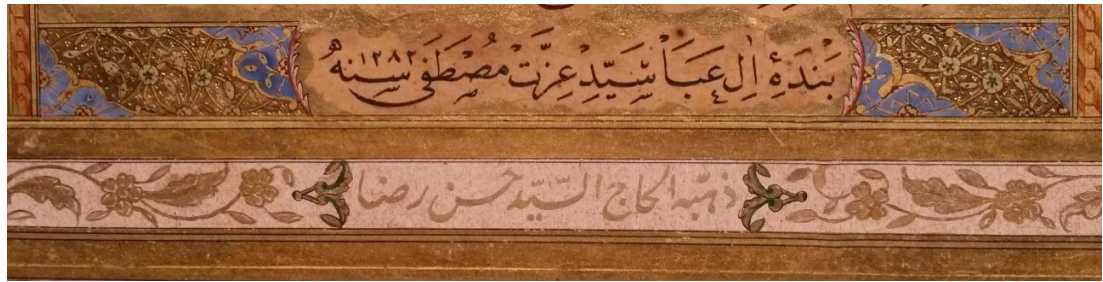 بَنْدَهٔ اٰلِ عَبَا سَيِّدْ عِزَّتْ مُصْطَفٰى سنه ١٢٨٢
ذهّبه الحاج السّيّد حسن رضا